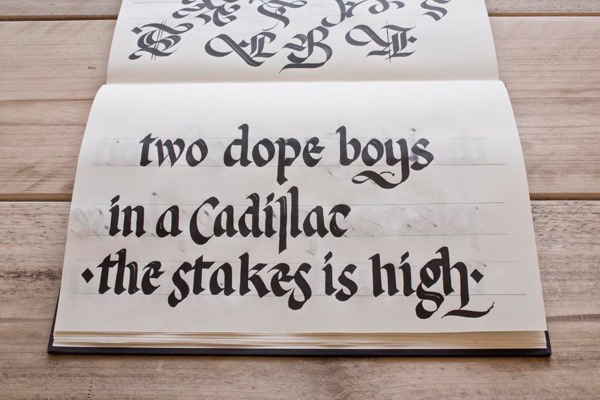 two dope boys
in a Cadillac
·the stakes is high·